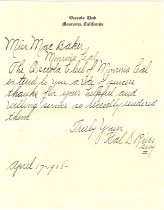 Osceola Club
Monrovia, California
Miss Mae Baker,
Monrovia Cal
The Osceola Club of Monrovia Cal
extend to you a vote of sincere
thanks for your helpful and
services so recently rendered
them
Truly Yours
April 17-1905-